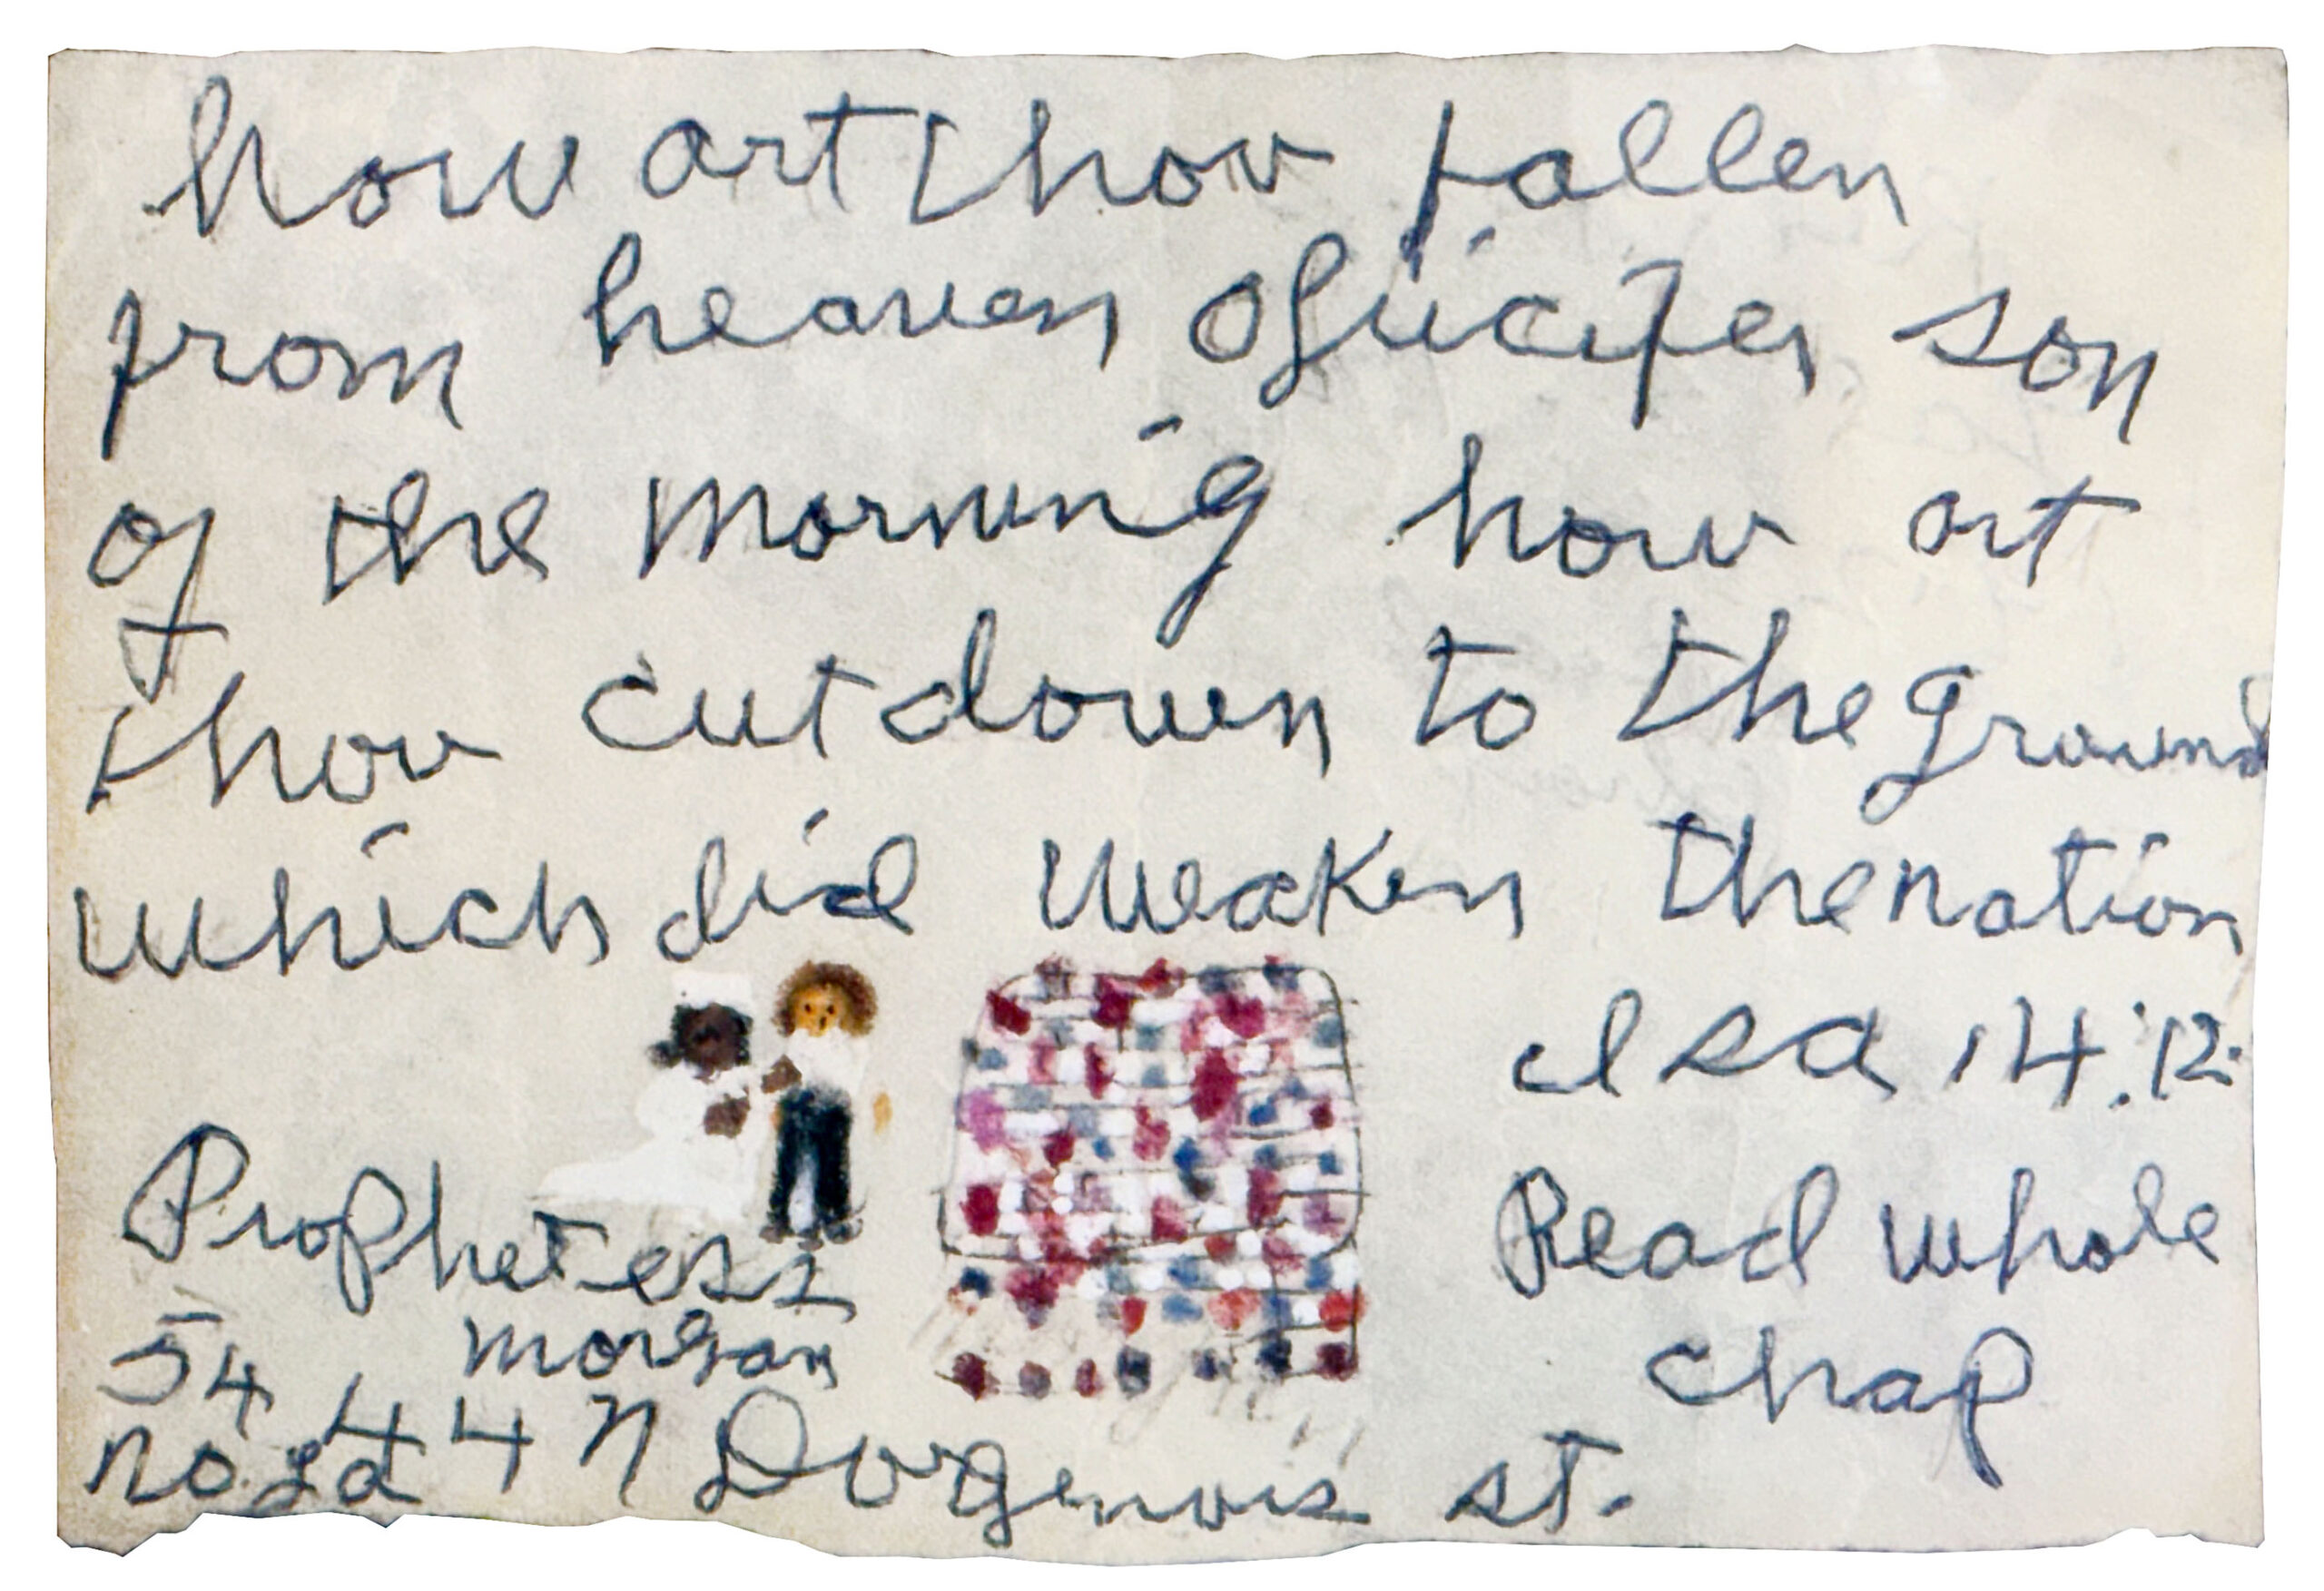 how art thou fallen
from heaven O lucifer son
of the morning how art
thou cut down to the ground
which did weaken the nation
Isa 14:12
Read whole
chap
Prophetess
morgan
5444 N Dorgenois st.
No. La